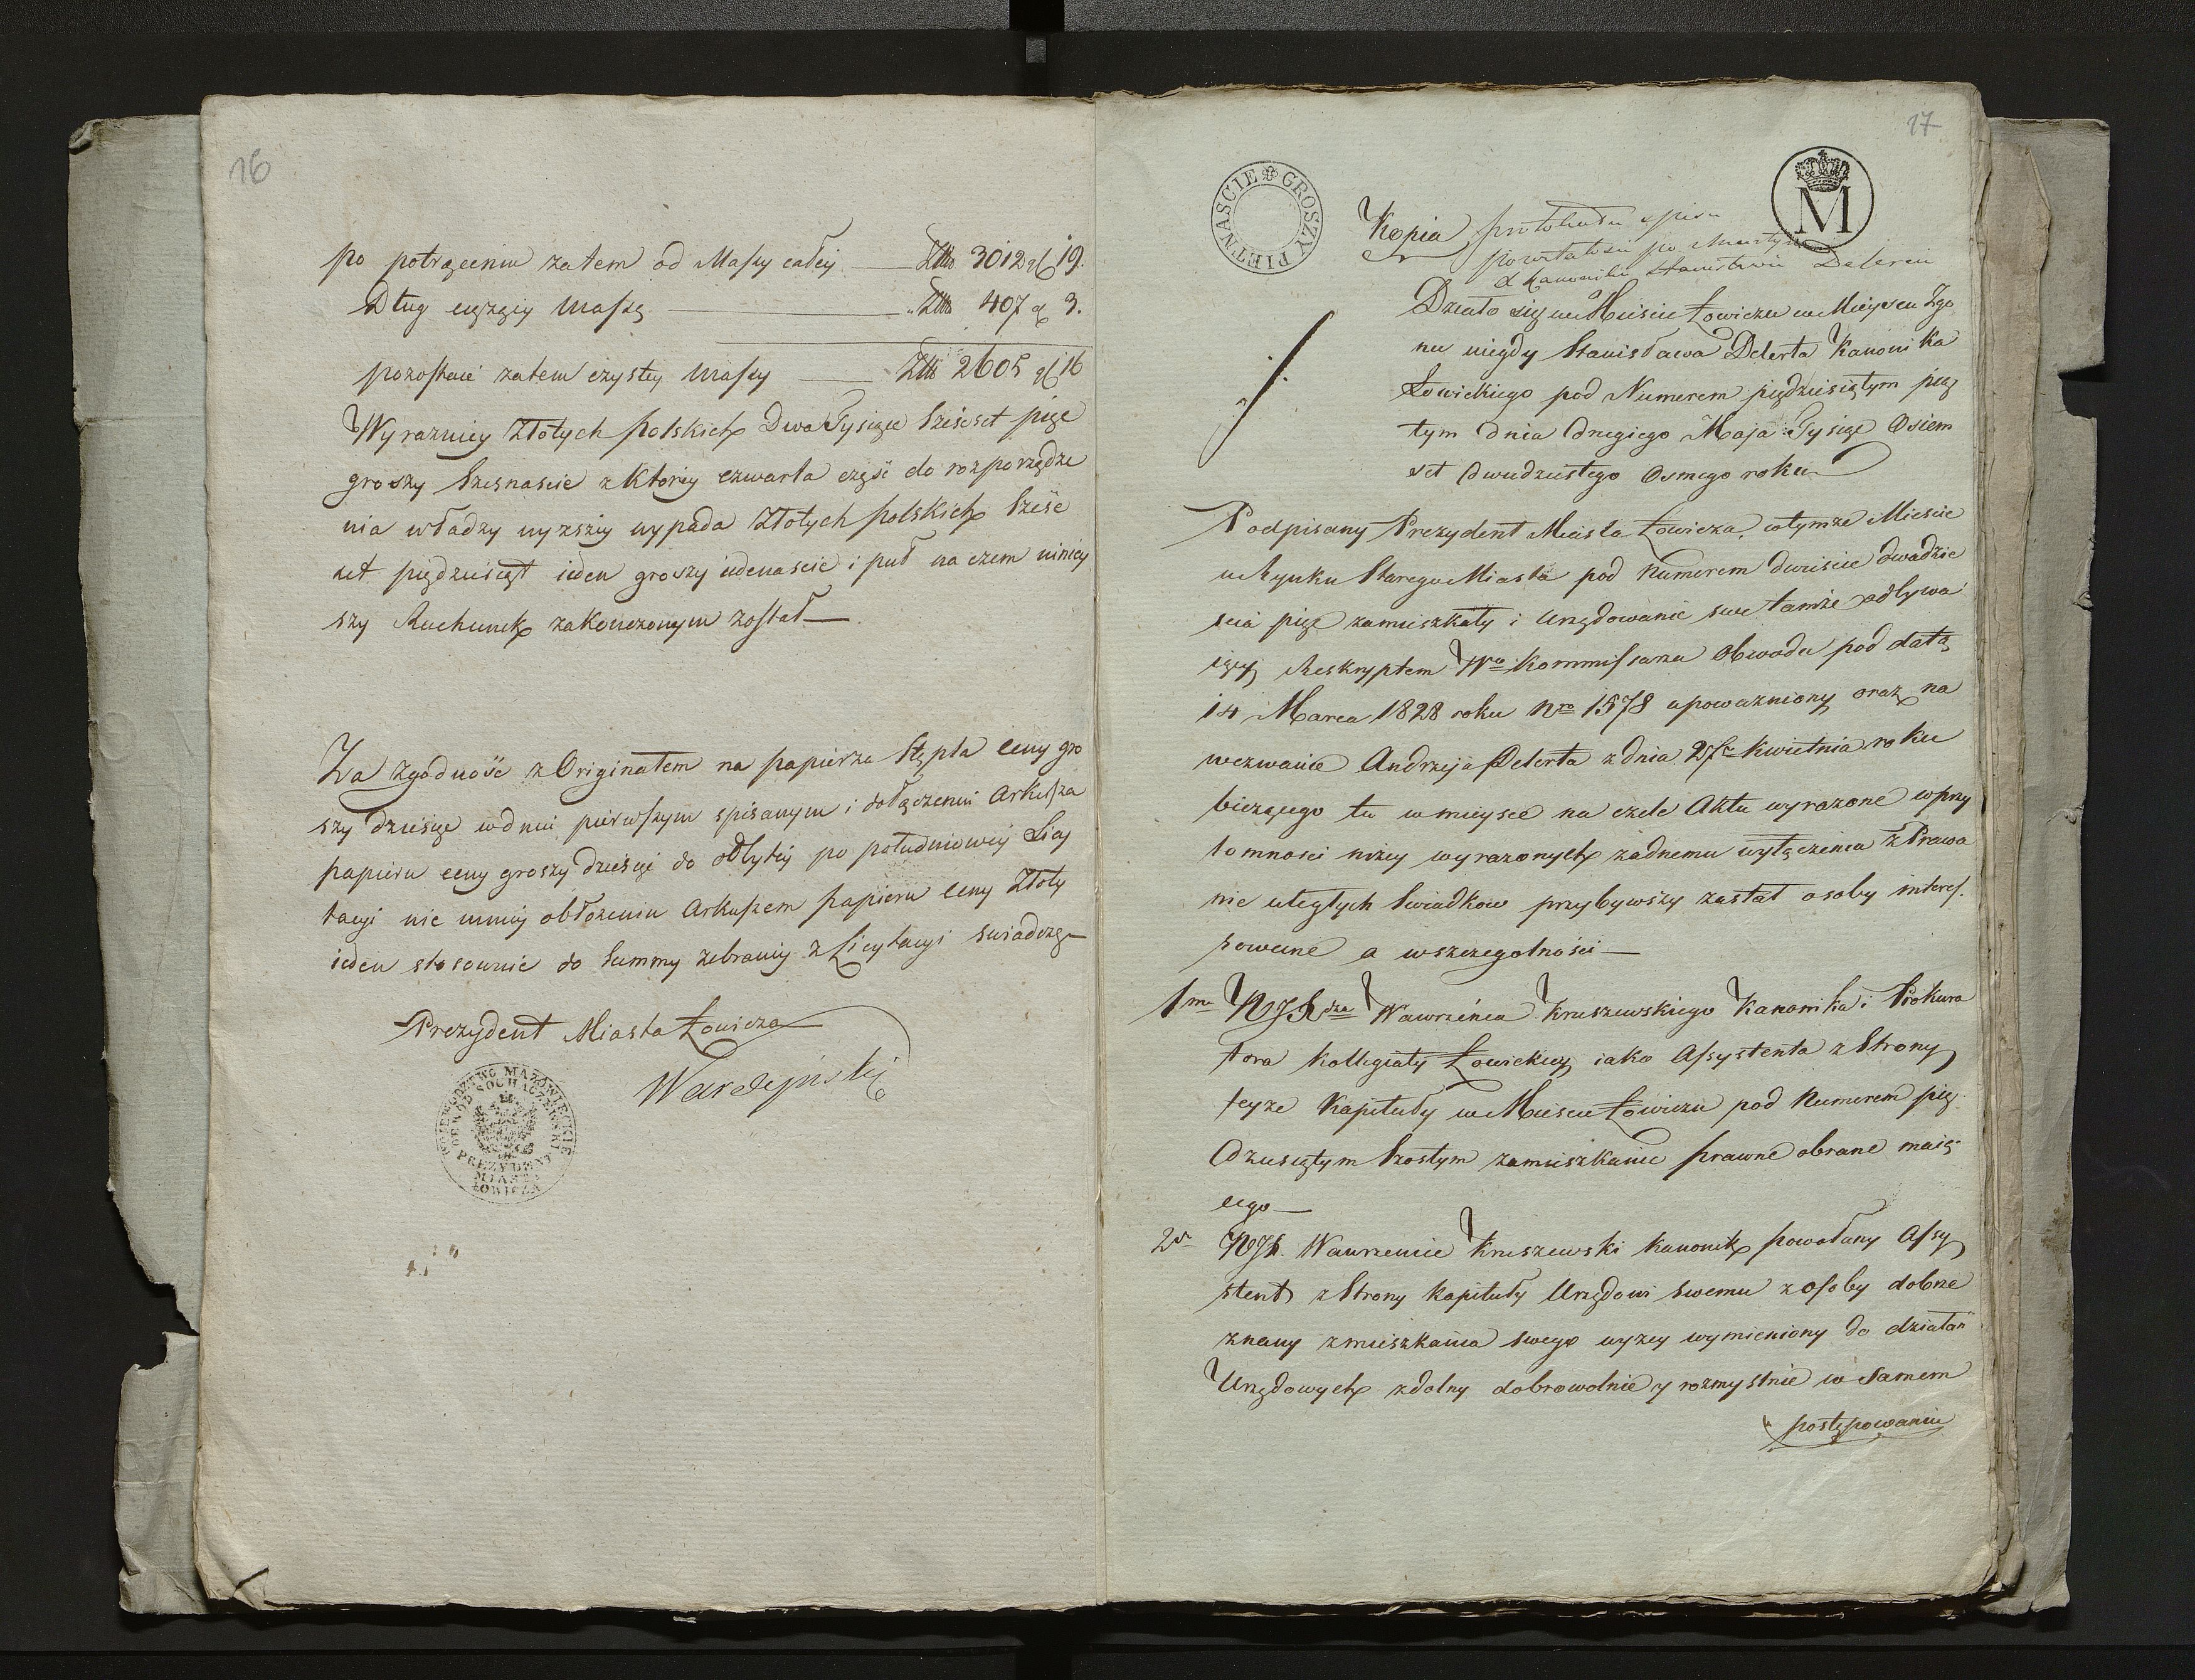 16
po potrąceniu zatem od Massy całey Złłł 3012 gr 19.
Dług ciążący Massę Złłł 407 gr 3.
pozostaie zatem czystey Massy Złłł 2605 gr 16
Wyrazniey Złotych polskich Dwa Tysiące Sześset pięc
groszy Szesnascie z Ktorey czwarta częsc do rozporządze
nia władzy wyzszey wypada Złotych polskich Szesc
set pięcdziesiąt ieden groszy iedenascie i puł na czem niniey
szy Rachunek zakonczonym został
Za zgodnosc z Originałem na papierze Stępla ceny gro
szy dziesięc w dniu pierwszym spisanym i dołączeniu Arkusza
papieru ceny groszy dziesięc do odbytey po południowey Licy
tacyi nie mniey obłożeniu Arkuszem papieru ceny Złoty
ieden stosownie do Summy zebraney z Licytacyi swiadczę
Prezydent Miasta Łowicza
WOJEWODZTWO MAZOWIECKIE
OBWOD SOCHACZEWSKI
PREZYDENT
MIASTA
ŁOWICZA
17
GROSZY PIETNASCIE
M
Kopia protokułu spisu
Działo się w Mieście Łowiczu w Mieyscu Zgo
nu niegdy Stanisława Delerta Kanonika
Łowickiego pod Numerem pięcdziesiątym pią
tym dnia drugiego Maja Tysiąc Osiem
set dwudziestego Osmego roku
Podpisany Prezydent Miasta Łowicza, w tymze Miescie
w Rynku Starego Miasta pod Numerem dwiescie dwadzie
scia pięc zamieszkały i Urzędowanie swe tamże odbywa
iący Reskryptem Wo Kommissarza Obwodu pod datą
14 Marca 1828 roku Nro 1578 upowazniony oraz na
wezwanie Andrzeja Delerta z dnia Kwietnia roku
bieżącego tu w mieysce na czele Aktu wyrazone w przy
tomnosci niżey wyrazonych żadnemu wyłączeniu z Prawa
nie uległych Swiadkow przybywszy zastał osoby interes.
sowane a w szczegolności
1mo WJXdza Wawrzeńca Kruszewskiego Kanonika i Prokura
tora Kollegiaty Łowickiey iako Assystenta z Strony
teyze Kapituły w Mieście Łowiczu pod Numerem pięc
dziesiątym Szostym zamieszkanie prawne obrane maią
cego
2do WJX. Wawrzeniec Kruszewski Kanonik powołany Assy
stent z Strony Kapituły Urzędowi Swemu z osoby dobrze
znany zmieszkania swego wyzey wymieniony do działań
Urzędowych zdolny dobrowolnie y rozmyslnie w Samem
postępowaniu